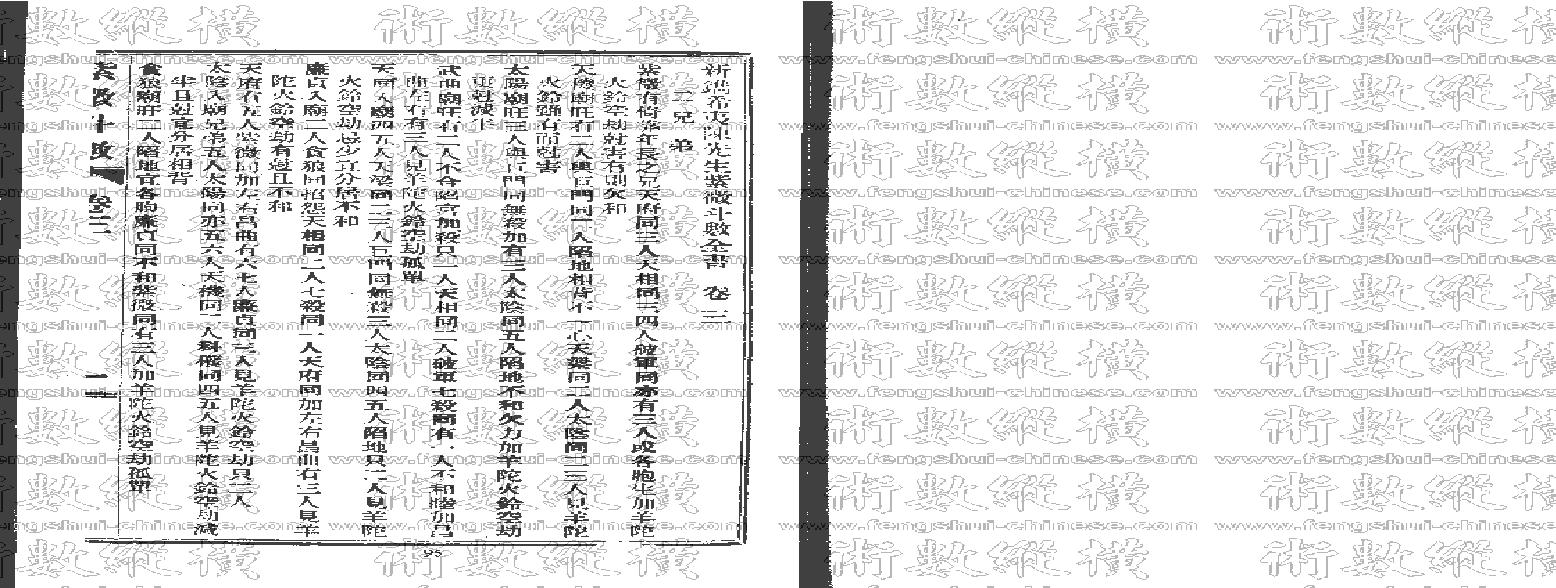 新鐫希夷陳先生紫微斗數全書 卷三
二兄弟
紫微有倚靠年長之兄天府同三人天相同三四人破軍同亦有三人或各胞生加羊陀
火鈴空劫尅害有則欠和
天機廟旺有二人與巨門同一人陷地相背不一心天梁同二人太陰同二三人見羊陀
火鈴雖有而尅害
太陽廟旺三人與巨門同無殺加有三人太陰同五人陷地不和欠力加羊陀火鈴空劫
更尅減半
武曲廟旺有二人不合陷宮加殺只一人天相同二人破軍七殺同有一人不和睦加昌
曲左右有三人見羊陀火鈴空劫孤單
天同入廟四五人天梁同二三人巨門同無殺三人太陰同四五人陷地只二人見羊陀
火鈴空劫忌少宜分居不和
廉貞入廟二人貪狼同招怨天相同二人七殺同一人天府同加左右昌曲有三人見羊
陀火鈴空劫有尅且不和
天府有五人紫微同加左右昌曲有六七人廉貞同三人見羊陀火鈴空劫只二人
太陰入廟兄弟五人太陽同亦五六人天機同二人天同四五人見羊陀火鈴空劫減
半且尅宜分居相背
貪狼廟旺二人陷地宜各胞廉貞同不和紫微同有三人加羊陀火鈴空劫孤單
卷三
二
95
術數縱橫
www.fengshui-chinese.com